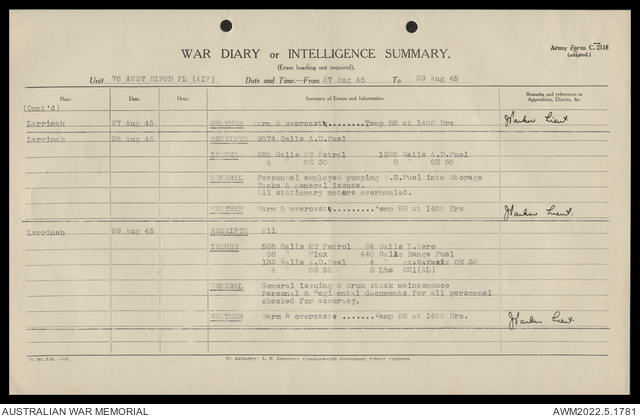 Army Form C. 2118
(Adapted).
WAR DIARY or INTELLIGENCE SUMMARY.
(Erase heading not required).
Unit 76 AUST HIPOD PL (AIF) Date and Time.—From 27 Aug 45 To 29 Aug 45
Place. Date. Hour. Summary of Events and Information. Remarks and references to Appendices, Diaries, &c.
(Cont'd)
Larrimah 27 Aug 45 WEATHER Warm & overcast........Temp 88 at 1400 Hrs Lieut.
Larrimah 28 Aug 45 RECEIPTS 9574 Galls A.D.Fuel
ISSUES 880 Galls MT Petrol 1320 Galls A.D.Fuel
4 " OE 30 8 " OE 50
GENERAL Personnel employed pumping A.D.Fuel into Storage
Tanks & general issues.
All stationary motors overhauled.
WEATHER Warm & overcast.........Temp 88 at 1400 Hrs Lieut.
Larrimah 29 Aug 45 RECEIPTS Nil
ISSUES 528 Galls MT Petrol 24 Galls L.Kero
88 " Flux 440 Galls Range Fuel
132 Galls A.D.Fuel 4 " OE 30
4 " OE 50 5 Lbs CO1(AL)
GENERAL General issuing & drum stock maintenance
Personal & Regimental documents for all personnel
checked for accuracy.
WEATHER Warm & overcast .......Temp 88 at 1400 Hrs. Lieut.
By Authority: L. F. Johnston, Commonwealth Government Printer, Canberra.
AUSTRALIAN WAR MEMORIAL AWM2022.5.1781